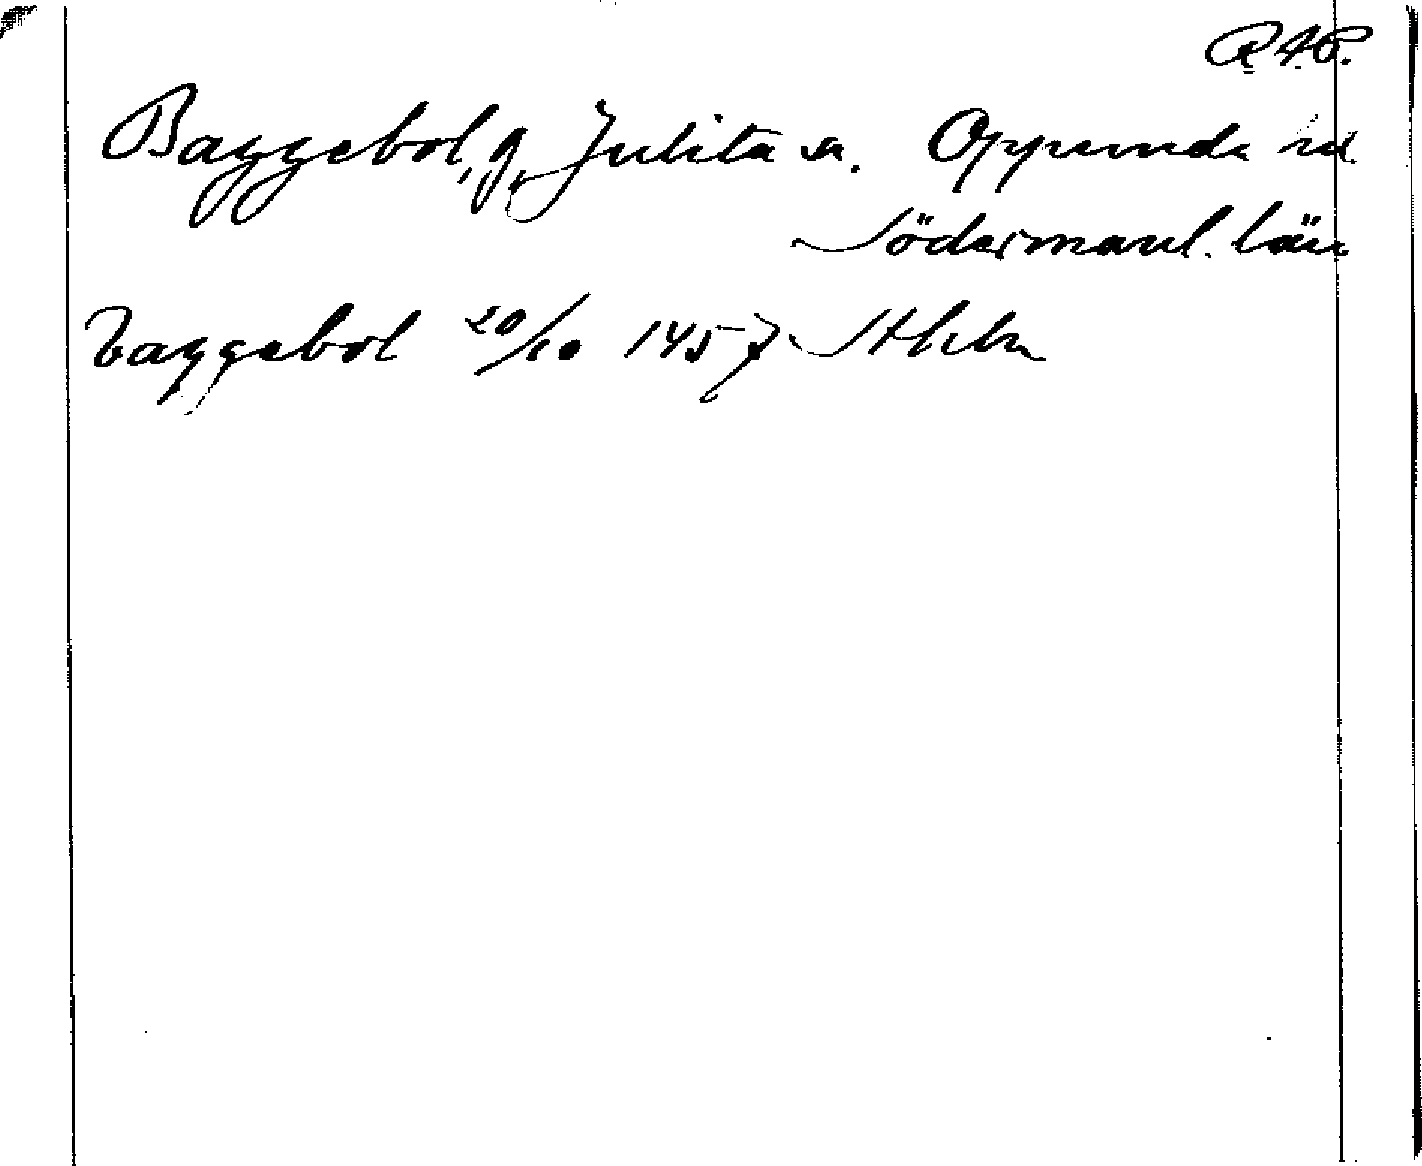 RAP.
Baggebol, g, Julita sn. Oppunda hd
Södermanl. län
baggebol 20/10 1457 Sthlm